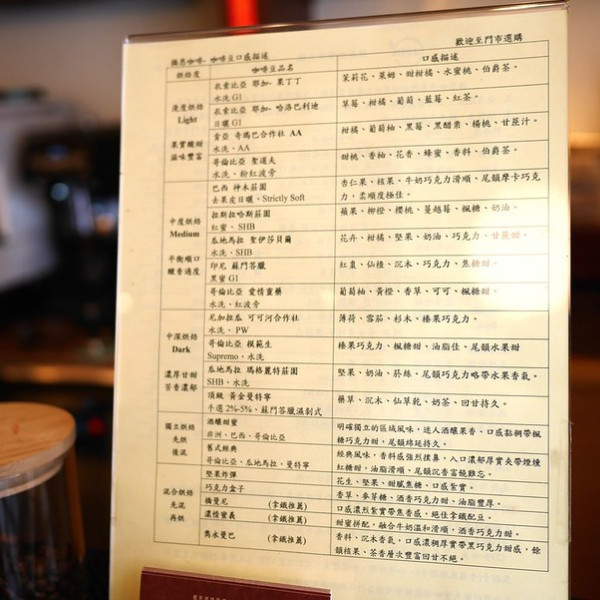 歡迎至門市選購
咖啡豆口感描述
烘焙度 咖啡豆品名 口感描述
淺度烘焙
Light
果實酸甜
滋味豐富
衣索比亞 耶加-果丁丁
水洗 G1
茉莉花、萊姆、甜柑橘、水蜜桃、伯爵茶。
衣索比亞 耶加-哈洛巴利迪
日曬 G1
草莓、柑橘、葡萄、藍莓、紅茶。
肯亞 奇瑪巴合作社 AA
水洗、AA
柑橘、葡萄柚、黑莓、黑醋栗、楊桃、甘蔗汁。
哥倫比亞 聖道夫
水洗、粉紅波旁
甜桃、香柚、花香、蜂蜜、香料、伯爵茶。
中度烘焙
Medium
平衡順口
釀香適度
巴西 神木莊園
去果皮日曬、Strictly Soft
杏仁果、核果、牛奶巧克力滑順、尾韻摩卡巧克
力，柔順度極佳。
拉斯拉哈斯莊園
紅蜜、SHB
蘋果、柳橙、櫻桃、蔓越莓、楓糖、奶油。
瓜地馬拉 聖伊莎貝爾
水洗、SHB
花卉、柑橘、堅果、奶油、巧克力、甘蔗甜。
印尼 蘇門答臘
黑蜜 G1
紅棗、仙楂、沉木、巧克力、焦糖甜。
哥倫比亞 愛情靈藥
水洗、紅波旁
葡萄柚、黃橙、香草、可可、楓糖甜。
中深烘焙
Dark
濃厚甘甜
苦香濃郁
尼加拉瓜 可可河合作社
水洗、PW
薄荷、雪茄、杉木、榛果巧克力。
哥倫比亞 模範生
Supremo、水洗
榛果巧克力、楓糖甜、油脂佳、尾韻水果甜
瓜地馬拉 瑪格麗特莊園
SHB、水洗
堅果、奶油、菸絲、尾韻巧克力略帶水果香氣。
頂級 黃金曼特寧
手選 2%-5%、蘇門答臘濕剝式
藥草、沉木、仙草乾、奶茶、回甘持久。
獨立烘焙
先烘
後混
酒釀甜蜜
非洲、巴西、哥倫比亞
明確獨立的區域風味，迷人酒釀果香，口感黏稠帶楓
糖巧克力甜，尾韻綿延持久。
舊式經典
哥倫比亞、瓜地馬拉、曼特寧
經典風味，香料感強烈撲鼻，入口濃郁厚實夾帶煙燻
紅糖甜，油脂滑順，尾韻沉香富饒難忘。
混合烘焙
先混
再烘
堅果炸彈
花生、堅果、甜膩焦糖、口感紮實。
巧克力盒子
香草、麥芽糖、酒香巧克力甜、油脂豐厚。
楠曼尼 (拿鐵推薦)
口感濃烈紮實帶焦香感，絕佳拿鐵配豆。
濃情蜜義 (拿鐵推薦)
甜蜜拼配，融合牛奶溫和滑順，酒香巧克力甜。
雋永曼巴 (拿鐵推薦)
香料、沉木香氣，口感濃稠厚實帶黑巧克力甜感，餘
韻核果、茶香層次豐富回甘不絕。